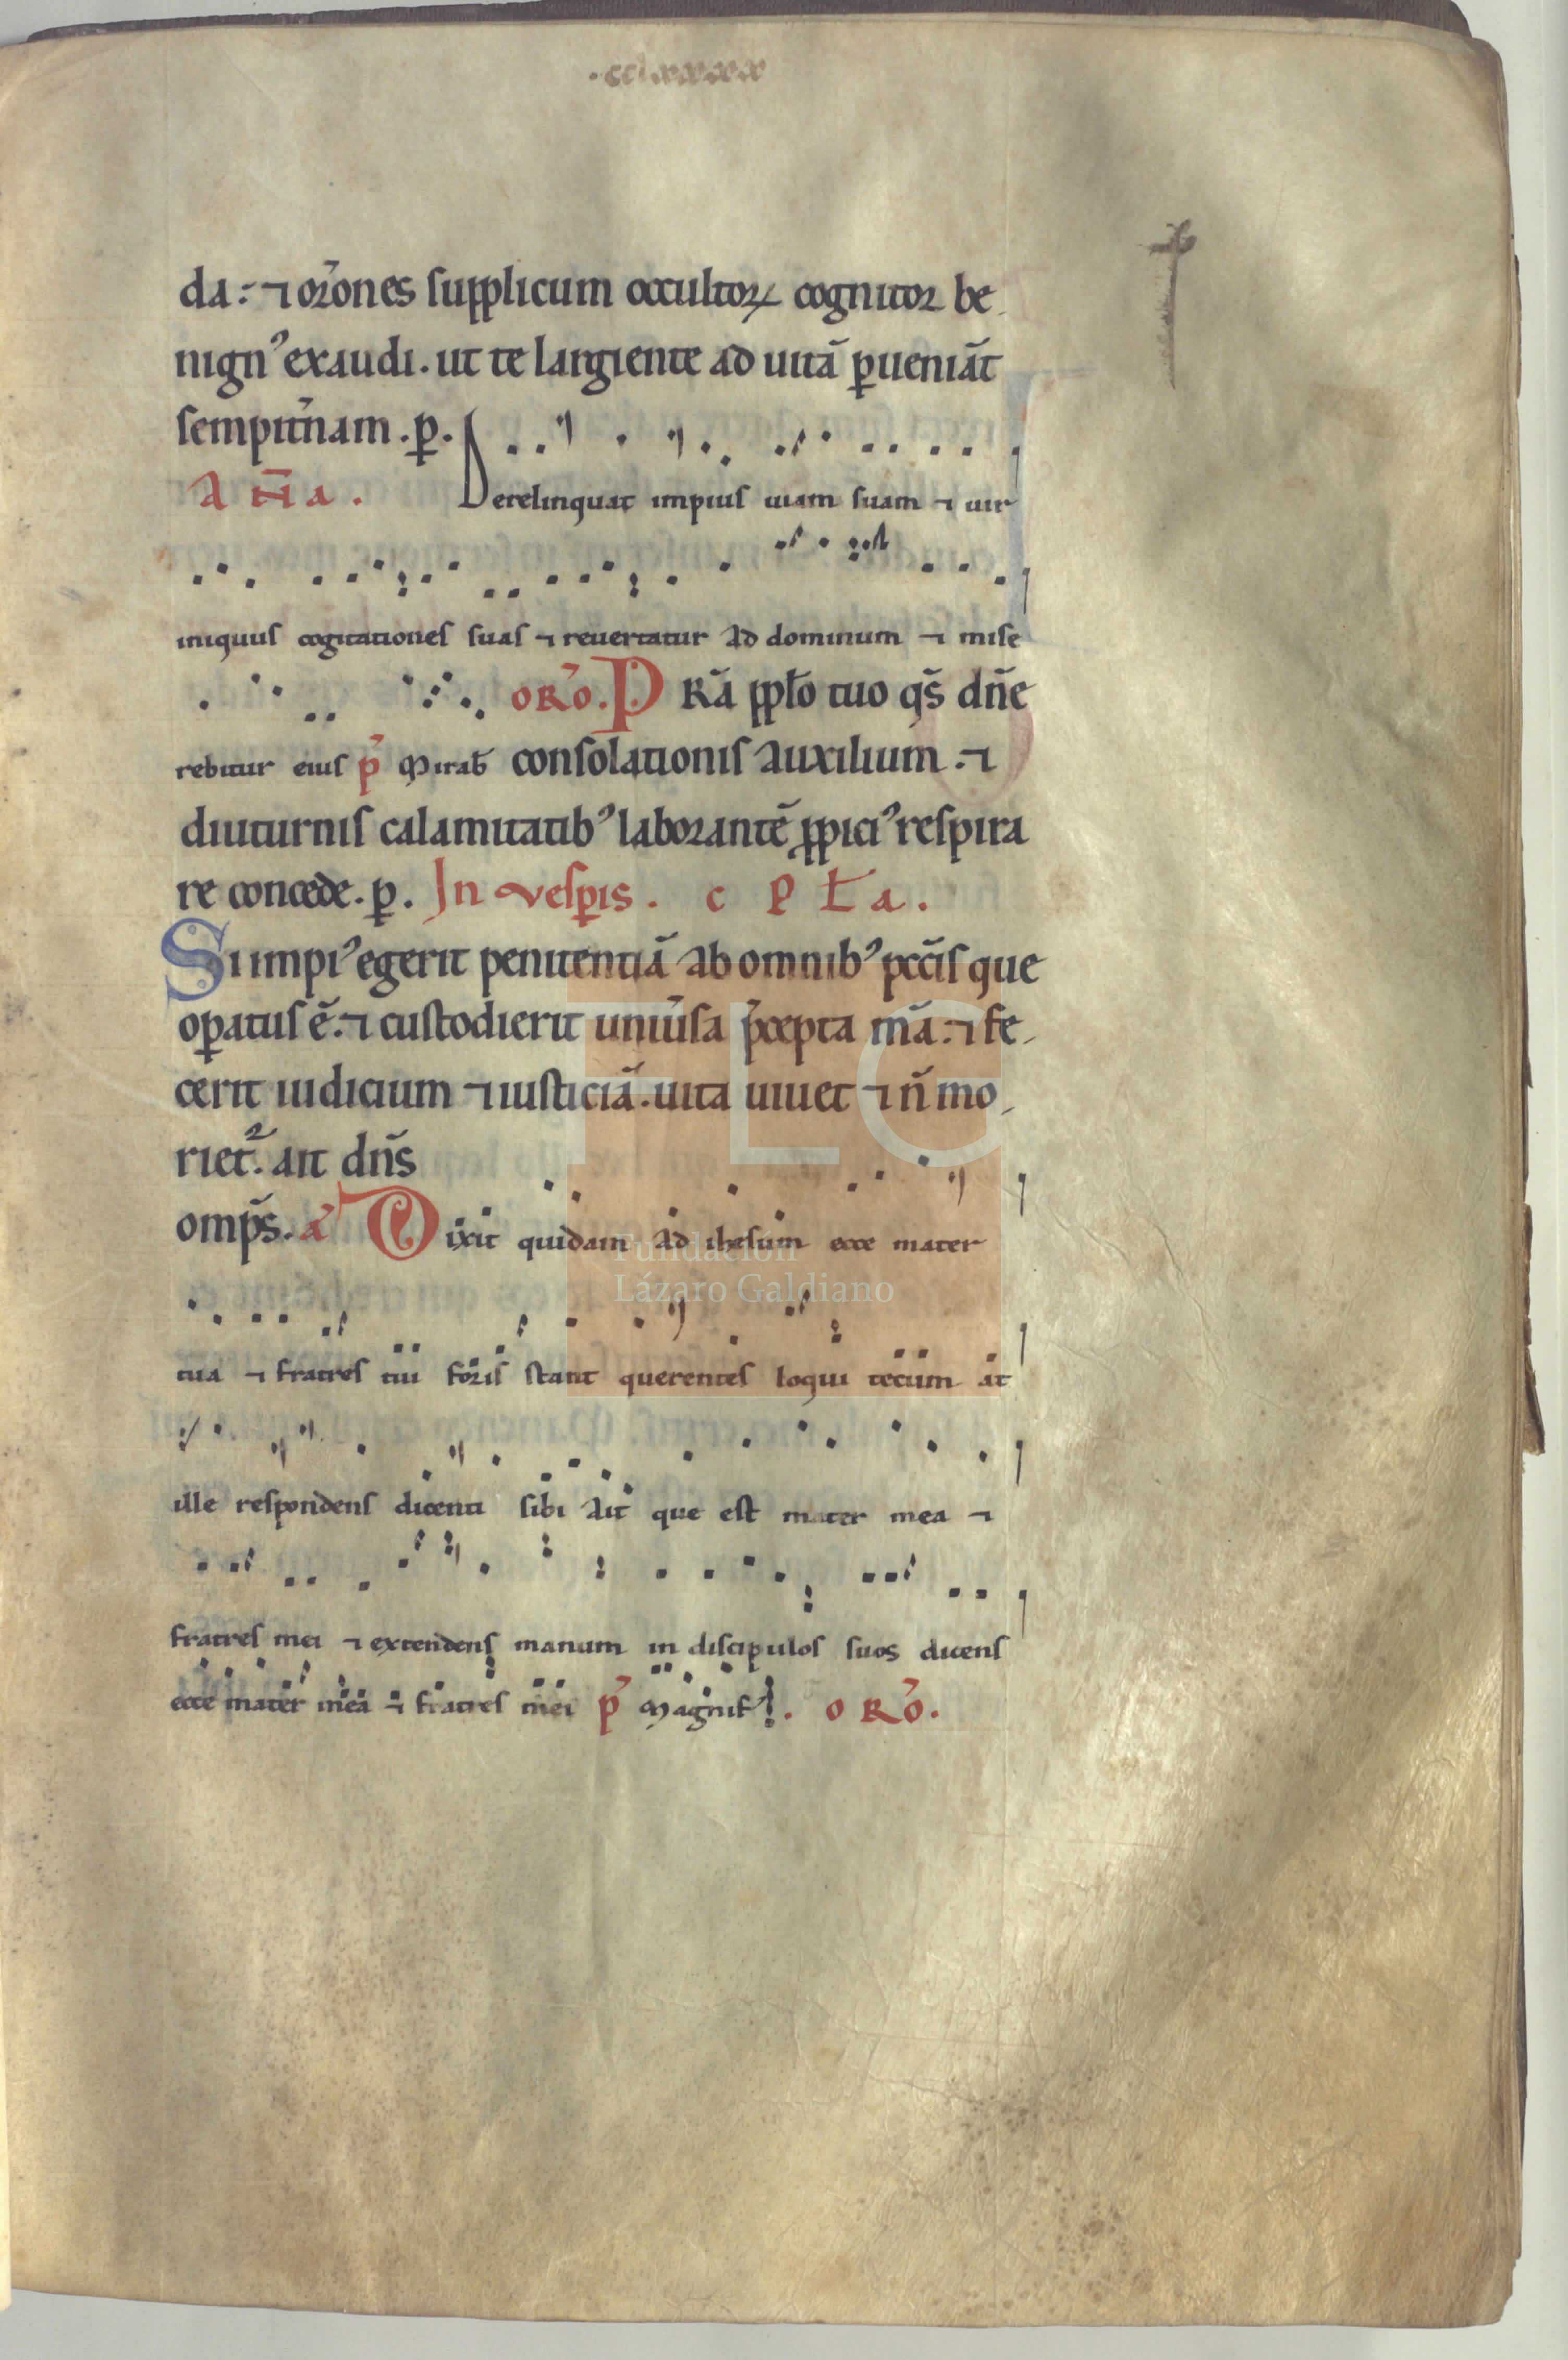 .cclxxxxx
da: ⁊ or̄ones supplicum occultoꝝ cognitor be
nignꝰ exaudi. ut te largiente ad uitā ꝑueniāt
sempit̄nam. ꝑ.
Aña. Derelinquat impius uiam suam ⁊ uir
iniquus cogitationes suas ⁊ reuertatur ad dominum ⁊ mise
rebitur eius p̄ Mirab̄
or̄o. PRā pplo tuo qs̄ dn̄e
consolationis auxilium. ⁊
diuturnis calamitatibꝰ laborantē ꝓpiciꝰ respira
re concede. ꝑ. In uesꝑis. cpła.
Si impiꝰ egerit penitentiā ab omnibꝰ pccīs que
oꝑatus ē. ⁊ custodierit uniūsa p̄cepta mā: ⁊ fe
cerit iudicium ⁊ iusticiā. uita uiuet ⁊ n̄ mo
riet᷑. ait dn̄s
omp̄s. a̓ Dixit quidam ad ihesum ecce mater
tua ⁊ fratres tui foris stant querentes loqui tecum at
ille respondens dicenti sibi ait que est mater mea ⁊
fratres mei ⁊ extendens manum in discipulos suos dicens
ecce mater mea ⁊ fratres mei p̄ Magnif. or̄o.
FLG
Fundación
Lázaro Galdiano